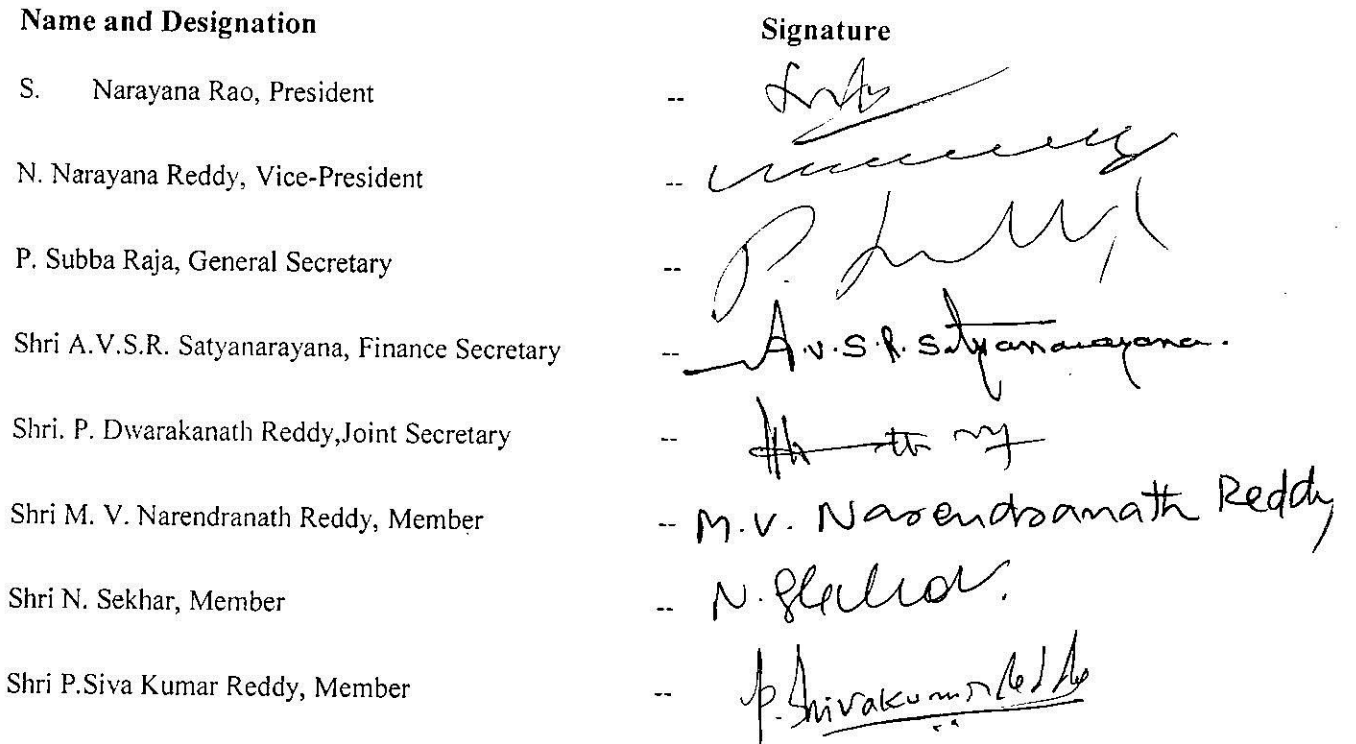 Name and Designation Signature
S. Narayana Rao, President --
N. Narayana Reddy, Vice-President --
P. Subba Raja, General Secretary -- P.
Shri A.V.S.R. Satyanarayana, Finance Secretary -- A.V.S.R. Satyanarayana.
Shri. P. Dwarakanath Reddy,Joint Secretary --
Shri M. V. Narendranath Reddy, Member -- M.V. Narendranath Reddy
Shri N. Sekhar, Member -- N. Shekhar.
Shri P.Siva Kumar Reddy, Member -- P. Shivakumar Reddy